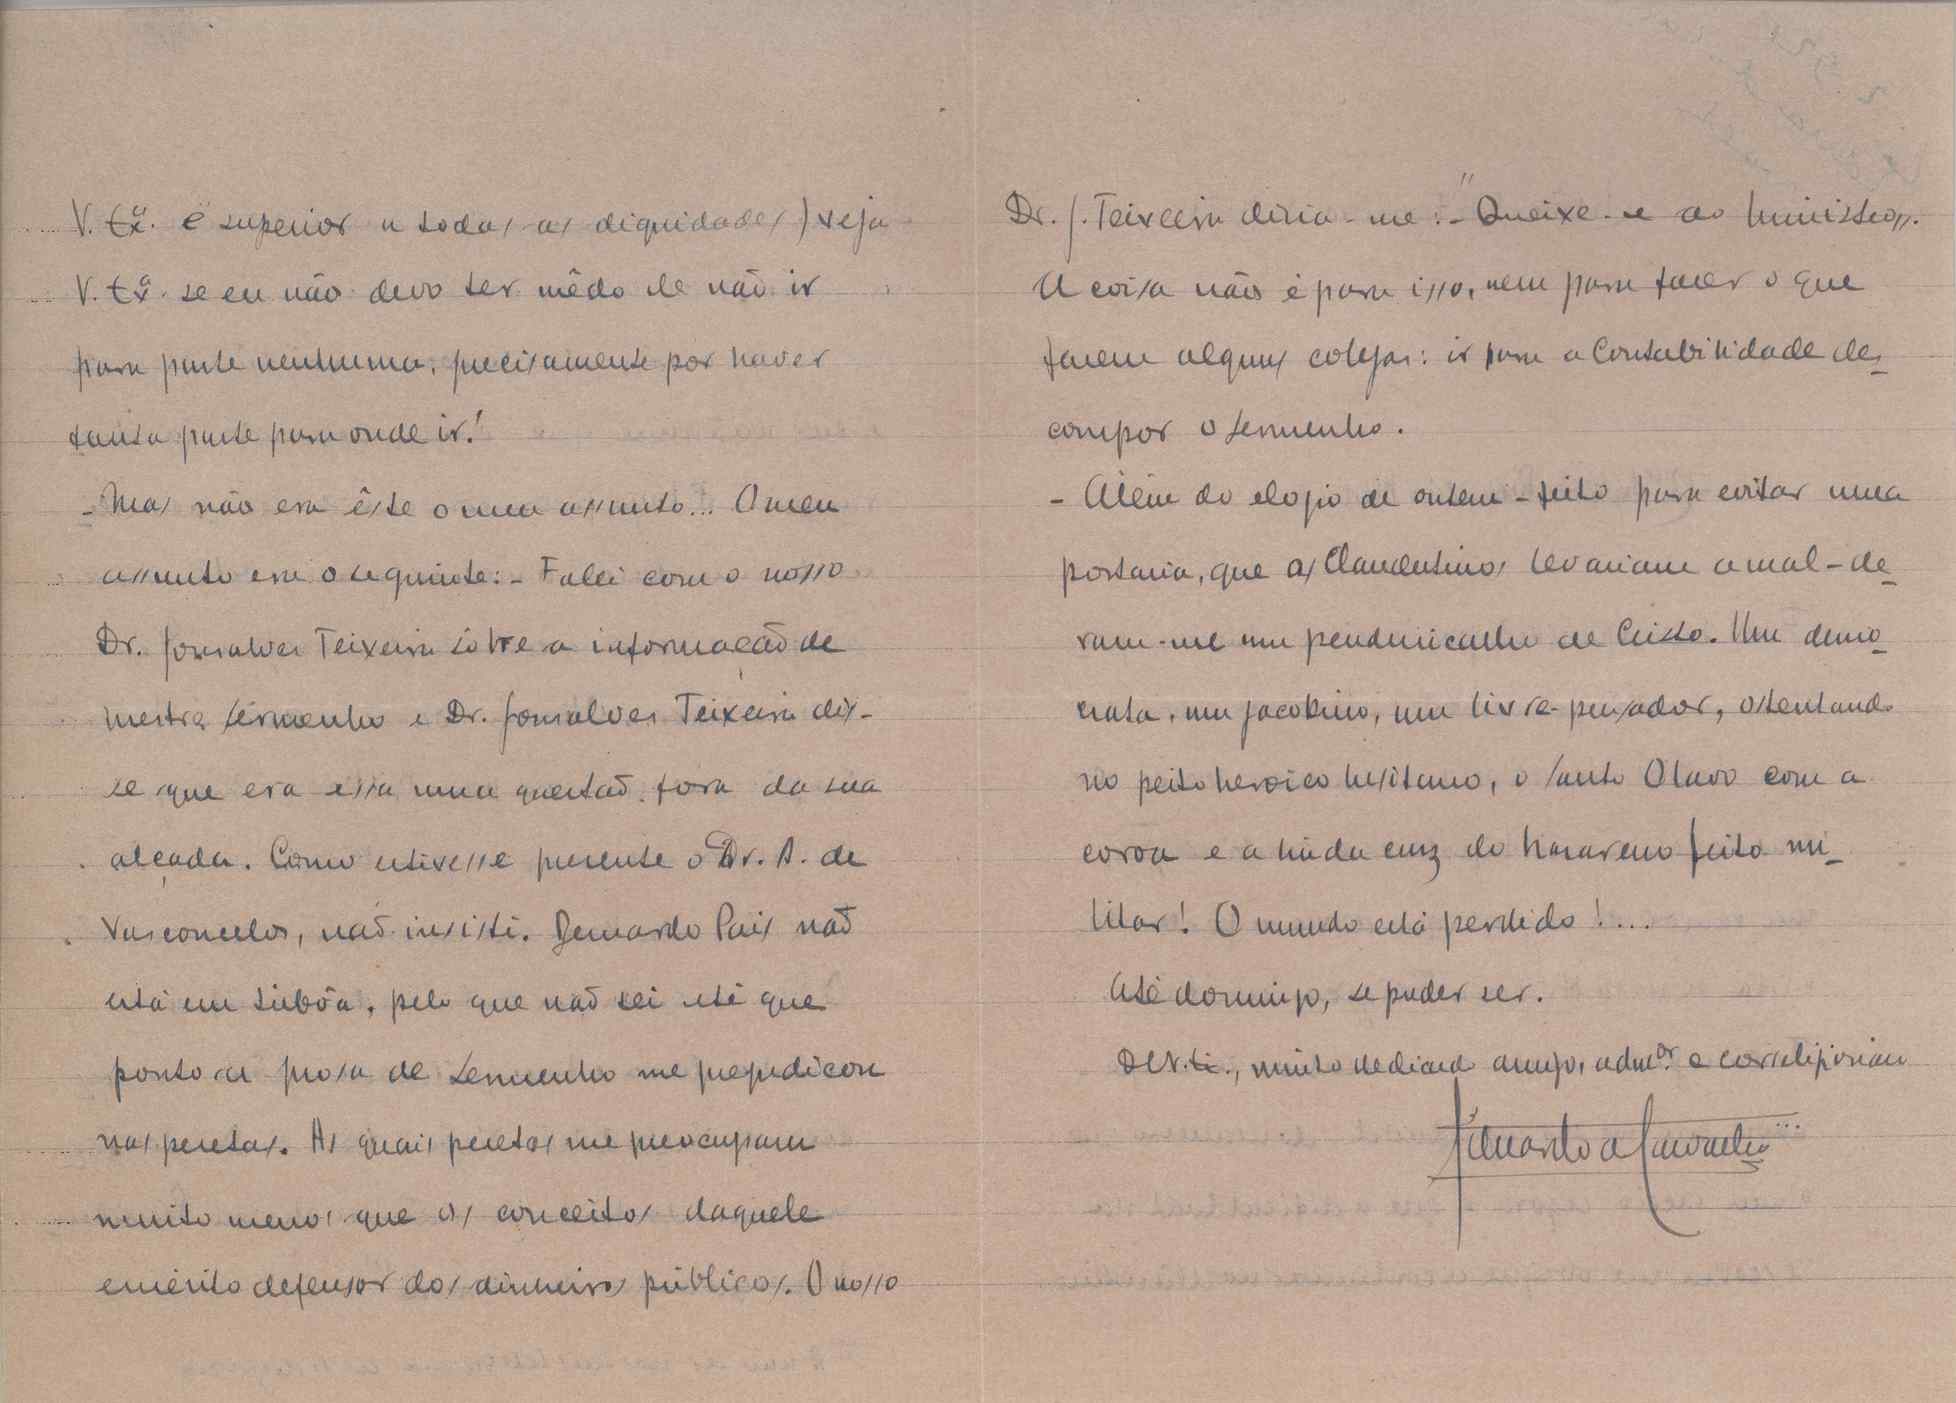 V. Exª. é superior a todas as dignidades) veja
V. Exª. se eu não devo ter mêdo de não ir
para parte nenhuma, precisamente por haver
tanta parte para onde ir!
- Mas não era êste o meu assunto... O meu
assunto era o seguinte: - Falei com o nosso
Dr. Gonsalves Teixeira sôbre a informação de
mestre Sermenho e Dr. Gonsalves Teixeira dis-
se que era essa uma questão fora da sua
alçada. Como estivesse presente o Dr. A. de
Vasconcelos, não insisti. Bernardo Pais não
está em Lisbôa, pelo que não sei até que
ponto a prosa de Sermenho me prejudicou
nas pesetas. As quais pesetas me preocupam
muito menos que os conceitos daquele
emérito defensor dos dinheiros públicos. O nosso
Dr. G. Teixeira diria-me: - "Queixe-se ao Ministro".
A coisa não é para isso, nem para fazer o que
fazem alguns colegas: ir para a Contabilidade des-
compor o Sermenho.
- Além do elogio de ontem - feito para evitar uma
portaria, que os Clandestinos levariam a mal - de-
ram-me um penduricalho de Cristo. Um demo-
crata, um jacobino, um livre-pensador, ostentando
no peito heroico lusitano, o Santo Olavo com a
coroa e a linda cruz do Nazareno feito mi-
litar! O mundo está perdido!...
Até domingo, se puder ser.
De V. Ex., muito dedicado amigo, admor. e correligionario
Eduardo a Carvalho...